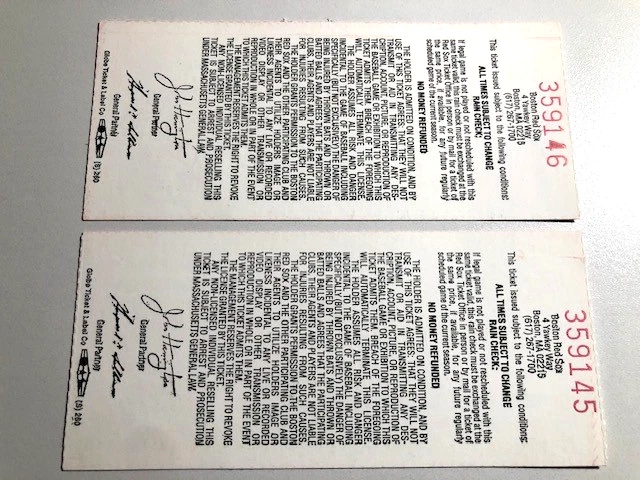 359146
Boston Red Sox
4 Yawkey Way
Boston, MA 02215
(617) 267-1700
This ticket issued subject to the following conditions:
ALL TIMES SUBJECT TO CHANGE
RAIN CHECK:
If legal game is not played or not rescheduled with this
same ticket valid, this rain check must be exchanged at the
Red Sox Ticket Office in person or by mail for a ticket of
the same price, if available, for any future regularly
scheduled game of the current season.
NO MONEY REFUNDED
THE HOLDER IS ADMITTED ON CONDITION, AND BY
USE OF THIS TICKET AGREES, THAT THEY WILL NOT
TRANSMIT OR AID IN TRANSMITTING ANY DES-
CRIPTION, ACCOUNT, PICTURE, OR REPRODUCTION OF
THE BASEBALL GAME OR EXHIBITION TO WHICH THIS
TICKET ADMITS THEM. BREACH OF THE FOREGOING
WILL AUTOMATICALLY TERMINATE THIS LICENSE.
THE HOLDER ASSUMES ALL RISK AND DANGER
INCIDENTAL TO THE GAME OF BASEBALL INCLUDING
SPECIFICALLY (BUT NOT EXCLUSIVELY) THE DANGER OF
BEING INJURED BY THROWN BATS AND THROWN OR
BATTED BALLS AND AGREES THAT THE PARTICIPATING
CLUBS, THEIR AGENTS AND PLAYERS ARE NOT LIABLE
FOR INJURIES RESULTING FROM SUCH CAUSES.
THE HOLDER GRANTS PERMISSION TO THE BOSTON
RED SOX AND THE OTHER PARTICIPATING CLUB AND
THEIR AGENTS TO UTILIZE HOLDERS IMAGE OR
LIKENESS INCIDENTAL TO ANY LIVE OR RECORDED
VIDEO DISPLAY OR OTHER TRANSMISSION OR
REPRODUCTION IN WHOLE OR IN PART OF THE EVENT
TO WHICH THIS TICKET ADMITS THEM.
THE MANAGEMENT RESERVES THE RIGHT TO REVOKE
THE LICENSE GRANTED BY THIS TICKET.
ANY NON-LICENSED INDIVIDUAL RESELLING THIS
TICKET IS SUBJECT TO ARREST AND PROSECUTION
UNDER MASSACHUSETTS GENERAL LAW.
John Harrington
General Partner
General Partner
Globe Ticket & Label Co. (S) 280
359145
Boston Red Sox
4 Yawkey Way
Boston, MA 02215
(617) 267-1700
This ticket issued subject to the following conditions:
ALL TIMES SUBJECT TO CHANGE
RAIN CHECK:
If legal game is not played or not rescheduled with this
same ticket valid, this rain check must be exchanged at the
Red Sox Ticket Office in person or by mail for a ticket of
the same price, if available, for any future regularly
scheduled game of the current season.
NO MONEY REFUNDED
THE HOLDER IS ADMITTED ON CONDITION, AND BY
USE OF THIS TICKET AGREES, THAT THEY WILL NOT
TRANSMIT OR AID IN TRANSMITTING ANY DES-
CRIPTION, ACCOUNT, PICTURE, OR REPRODUCTION OF
THE BASEBALL GAME OR EXHIBITION TO WHICH THIS
TICKET ADMITS THEM. BREACH OF THE FOREGOING
WILL AUTOMATICALLY TERMINATE THIS LICENSE.
THE HOLDER ASSUMES ALL RISK AND DANGER
INCIDENTAL TO THE GAME OF BASEBALL INCLUDING
SPECIFICALLY (BUT NOT EXCLUSIVELY) THE DANGER OF
BEING INJURED BY THROWN BATS AND THROWN OR
BATTED BALLS AND AGREES THAT THE PARTICIPATING
CLUBS, THEIR AGENTS AND PLAYERS ARE NOT LIABLE
FOR INJURIES RESULTING FROM SUCH CAUSES.
THE HOLDER GRANTS PERMISSION TO THE BOSTON
RED SOX AND THE OTHER PARTICIPATING CLUB AND
THEIR AGENTS TO UTILIZE HOLDERS IMAGE OR
LIKENESS INCIDENTAL TO ANY LIVE OR RECORDED
VIDEO DISPLAY OR OTHER TRANSMISSION OR
REPRODUCTION IN WHOLE OR IN PART OF THE EVENT
TO WHICH THIS TICKET ADMITS THEM.
THE MANAGEMENT RESERVES THE RIGHT TO REVOKE
THE LICENSE GRANTED BY THIS TICKET.
ANY NON-LICENSED INDIVIDUAL RESELLING THIS
TICKET IS SUBJECT TO ARREST AND PROSECUTION
UNDER MASSACHUSETTS GENERAL LAW.
John Harrington
General Partner
General Partner
Globe Ticket & Label Co. (S) 280